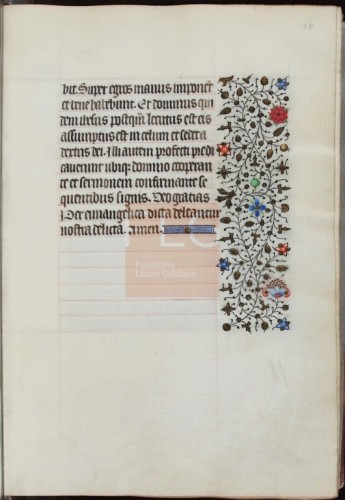 18
bit. Super egros manus imponent
et bene habebunt. Et dominus qui
dem ihesus postqm locutus est eis
assumptus est in celum et sedet a
dextris dei. Illi autem profecti predi
cauerunt ubiqz domino cooperan
te et sermonem confirmante se
quentibus signis. Deo gratias
Per euuangelica dicta deleantur
nostra delicta. Amen.
Fundación
Lázaro Galdiano